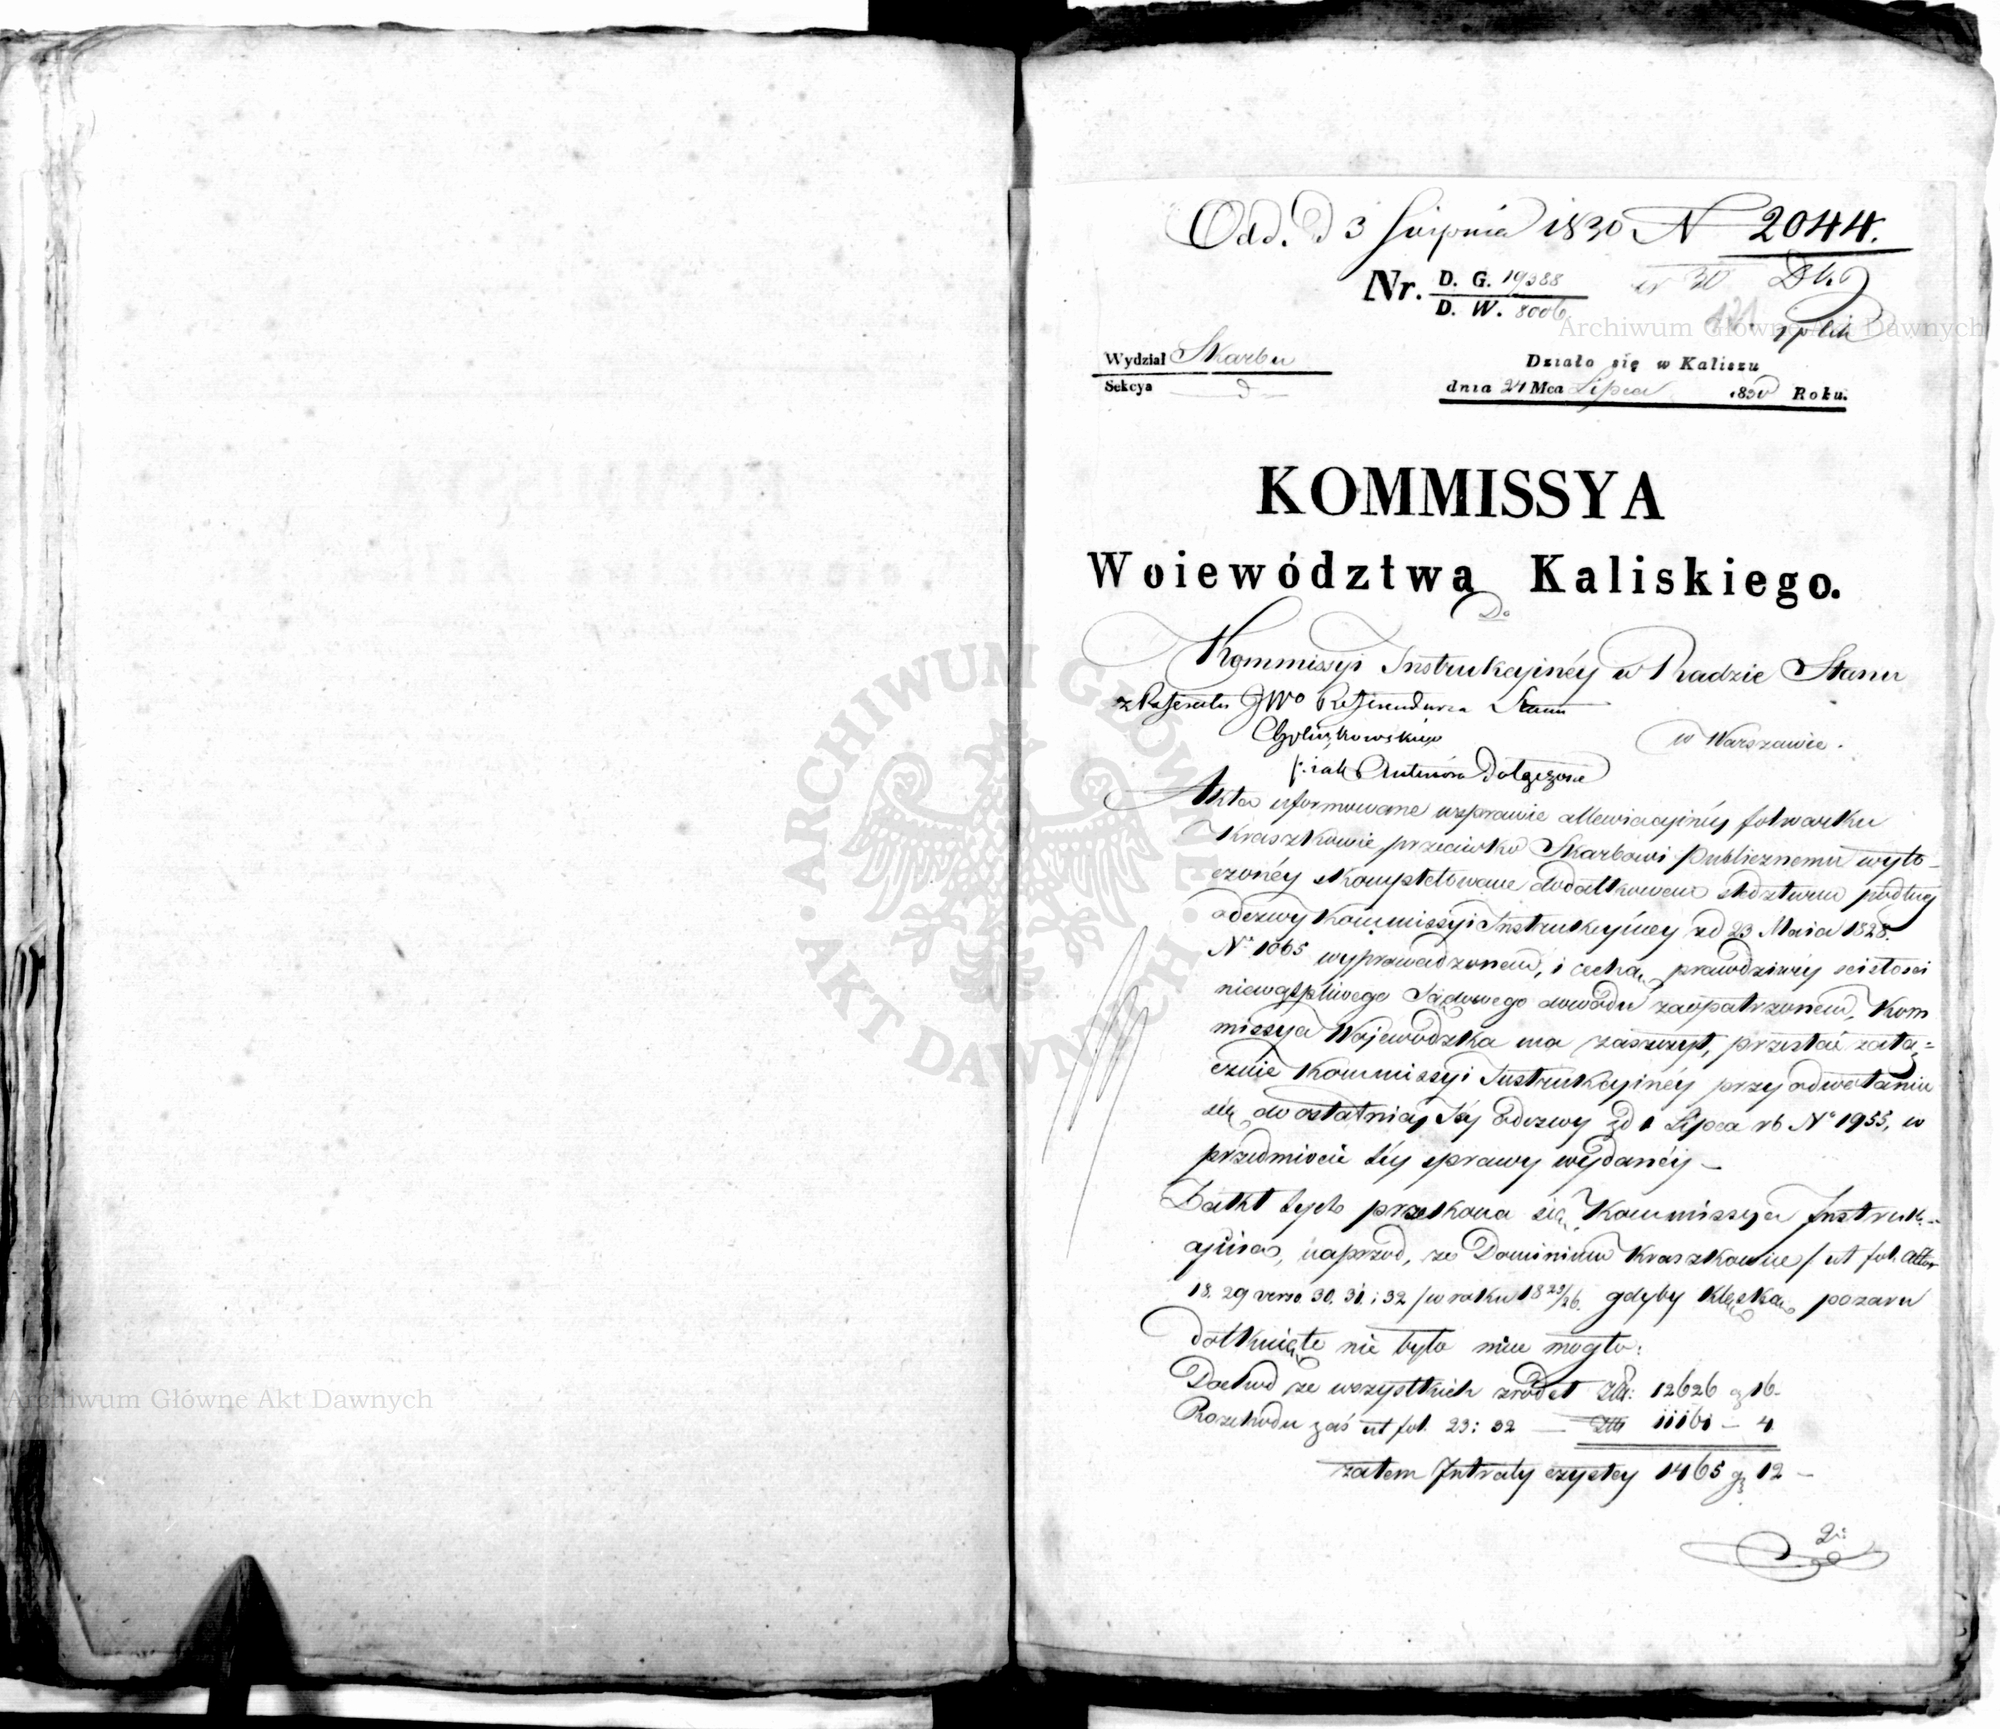 Odd. d 3 Sierpnia 1830 N 2044.
Nr. D. G. 19388
D. W. 8006
Wydział Skarbu
Sekcya
Działo się w Kaliszu
dnia 21 Mca Lipca 1830 Roku.
KOMMISSYA
Woiewództwa Kaliskiego.
Do
Kommissyi Instrukcyinéy w Radzie Stanu
z Referatu JWo Referendarza Stanu
w Warszawie.
Akta uformowane wsprawie allewiacyinéy folwarku
Kraszkowie przeciwko Skarbowi Publicznemu wyto-
czonéy skompletowane dodatkowem śledztwem podług
odezwy Kommissyi Instrukcyiney zd 23 Maia 1828.
No 1065 wyprowadzonem, i cechą prawdziwéy scisłosci
niewątpliwego Sądowego dowodu zaopatrzonem, Kom
missya Wojewódzka ma zaszczyt, przesłać załą=
cznie Kommissyi Instrukcyinéy przy odwołaniu
się do ostatniéj Jéy Odezwy zd 1 Lipca rb No 1955, w
przedmiocie téy sprawy wydanéy –
Z akt tych przekona się Kommissya Instruk-
cyina, naprzód, że Dominium Kraszkowice / ut fol. Actor
18. 29 verso 30. 31. i 32 / w roku 1825/26. gdyby klęską pożaru
dotknięte nie było mieć mogło:
Dochód ze wszystkich zrodeł Złł: 12626 g 16-
Rozchodu zaś ut fol. 23: 32 — Złł 11161 – 4
zatem Intraty czystey 1465 g 12 –
2:
Archiwum Główne Akt Dawnych
Archiwum Główne Akt Dawnych
ARCHIWUM GŁÓWNE · AKT DAWNYCH ·